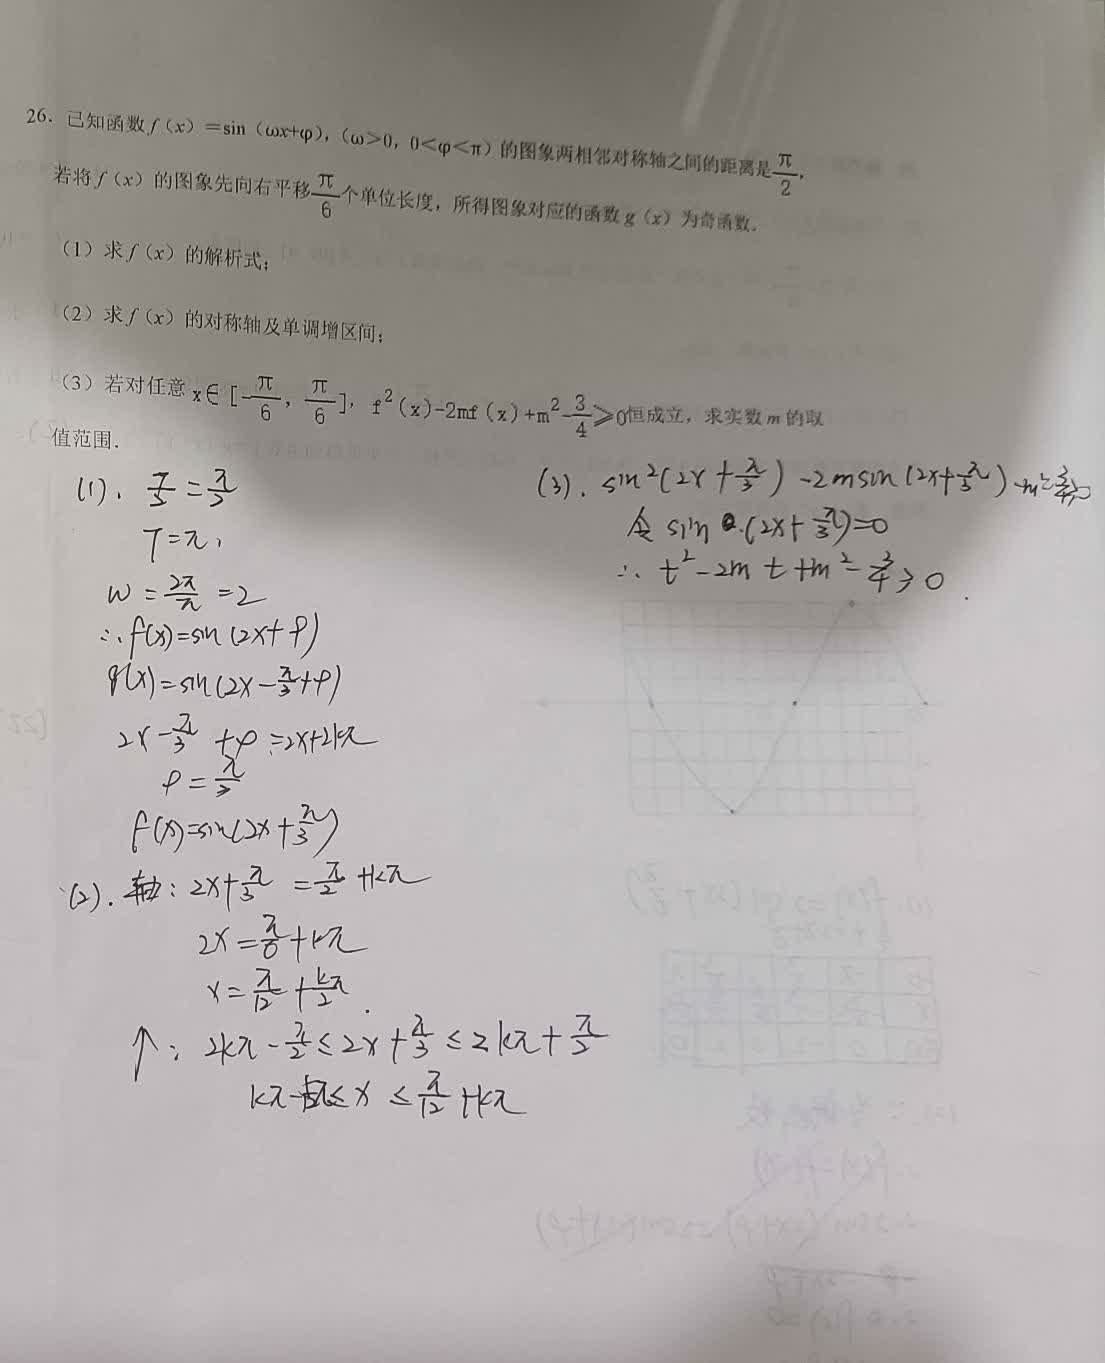 26. 已知函数 f(x)=sin(ωx+φ), (ω>0, 0<φ<π) 的图象两相邻对称轴之间的距离是 π/2,
若将 f(x) 的图象先向右平移 π/6 个单位长度, 所得图象对应的函数 g(x) 为奇函数.
(1) 求 f(x) 的解析式;
(2) 求 f(x) 的对称轴及单调增区间;
(3) 若对任意 x∈[-π/6, π/6], f²(x)-2mf(x)+m²-3/4≥0恒成立, 求实数 m 的取
值范围.
(1). T/2=π/2
T=π,
w=2π/π=2
∴f(x)=sin(2x+φ)
g(x)=sin(2x-π/3+φ)
2x-π/3+φ=2x+2kπ
φ=π/3
f(x)=sin(2x+π/3)
(2). 轴: 2x+π/3=π/2+kπ
2x=π/6+kπ
x=π/12+kπ/2.
↑: 2kπ-π/2≤2x+π/3≤2kπ+π/2
≤x≤π/12+kπ
(3). sin²(2x+π/3)-2msin(2x+π/3)
令 sin(2x+π/3)=0
∴ t²-2mt+m²-3/4≥0.